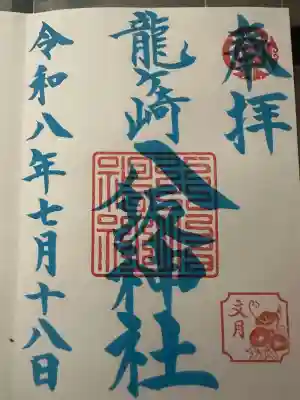 奉拝
龍ヶ崎
神社
令和八年七月十八日
文月